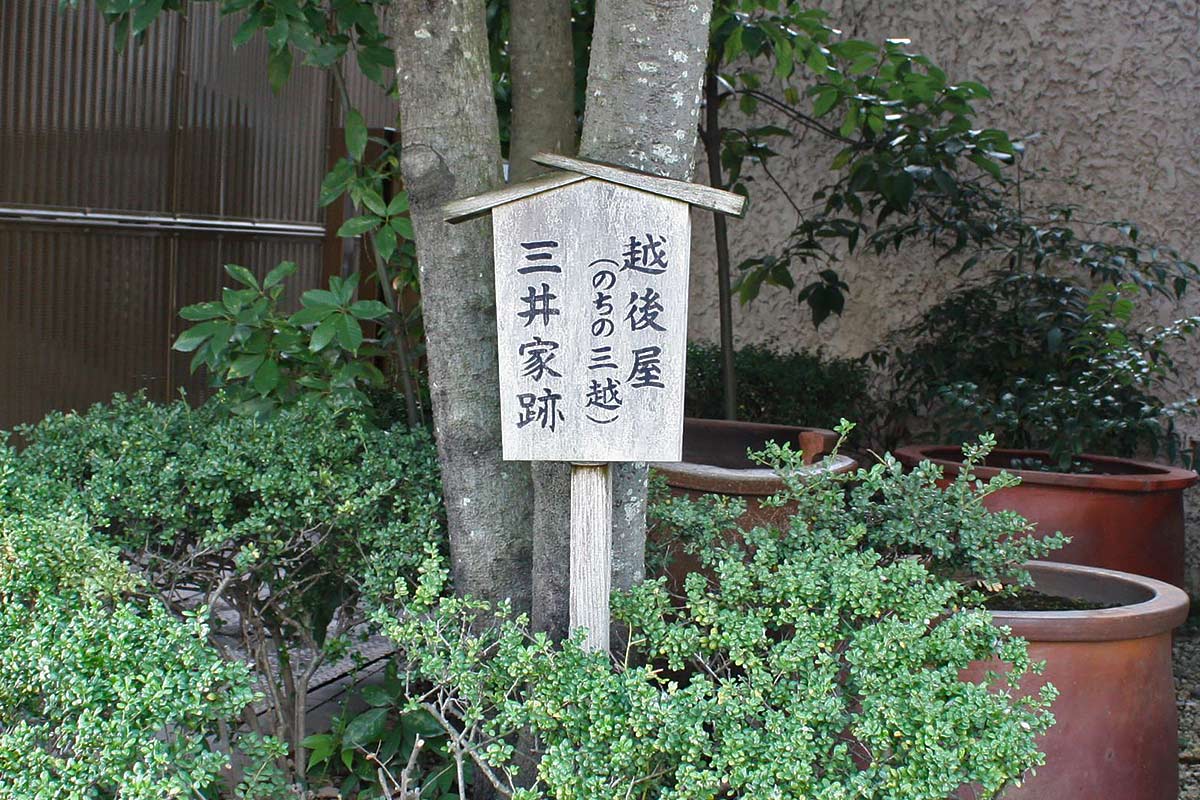 越後屋
(のちの三越)
三井家跡